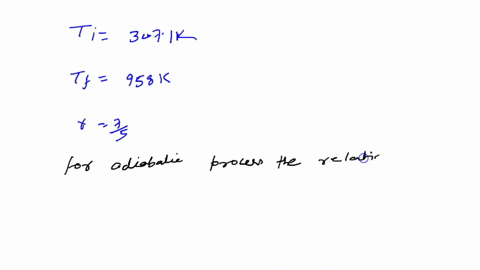 Ti = 307.1K
Tf = 958K
r = 7/5
for adiabatic process the relatio